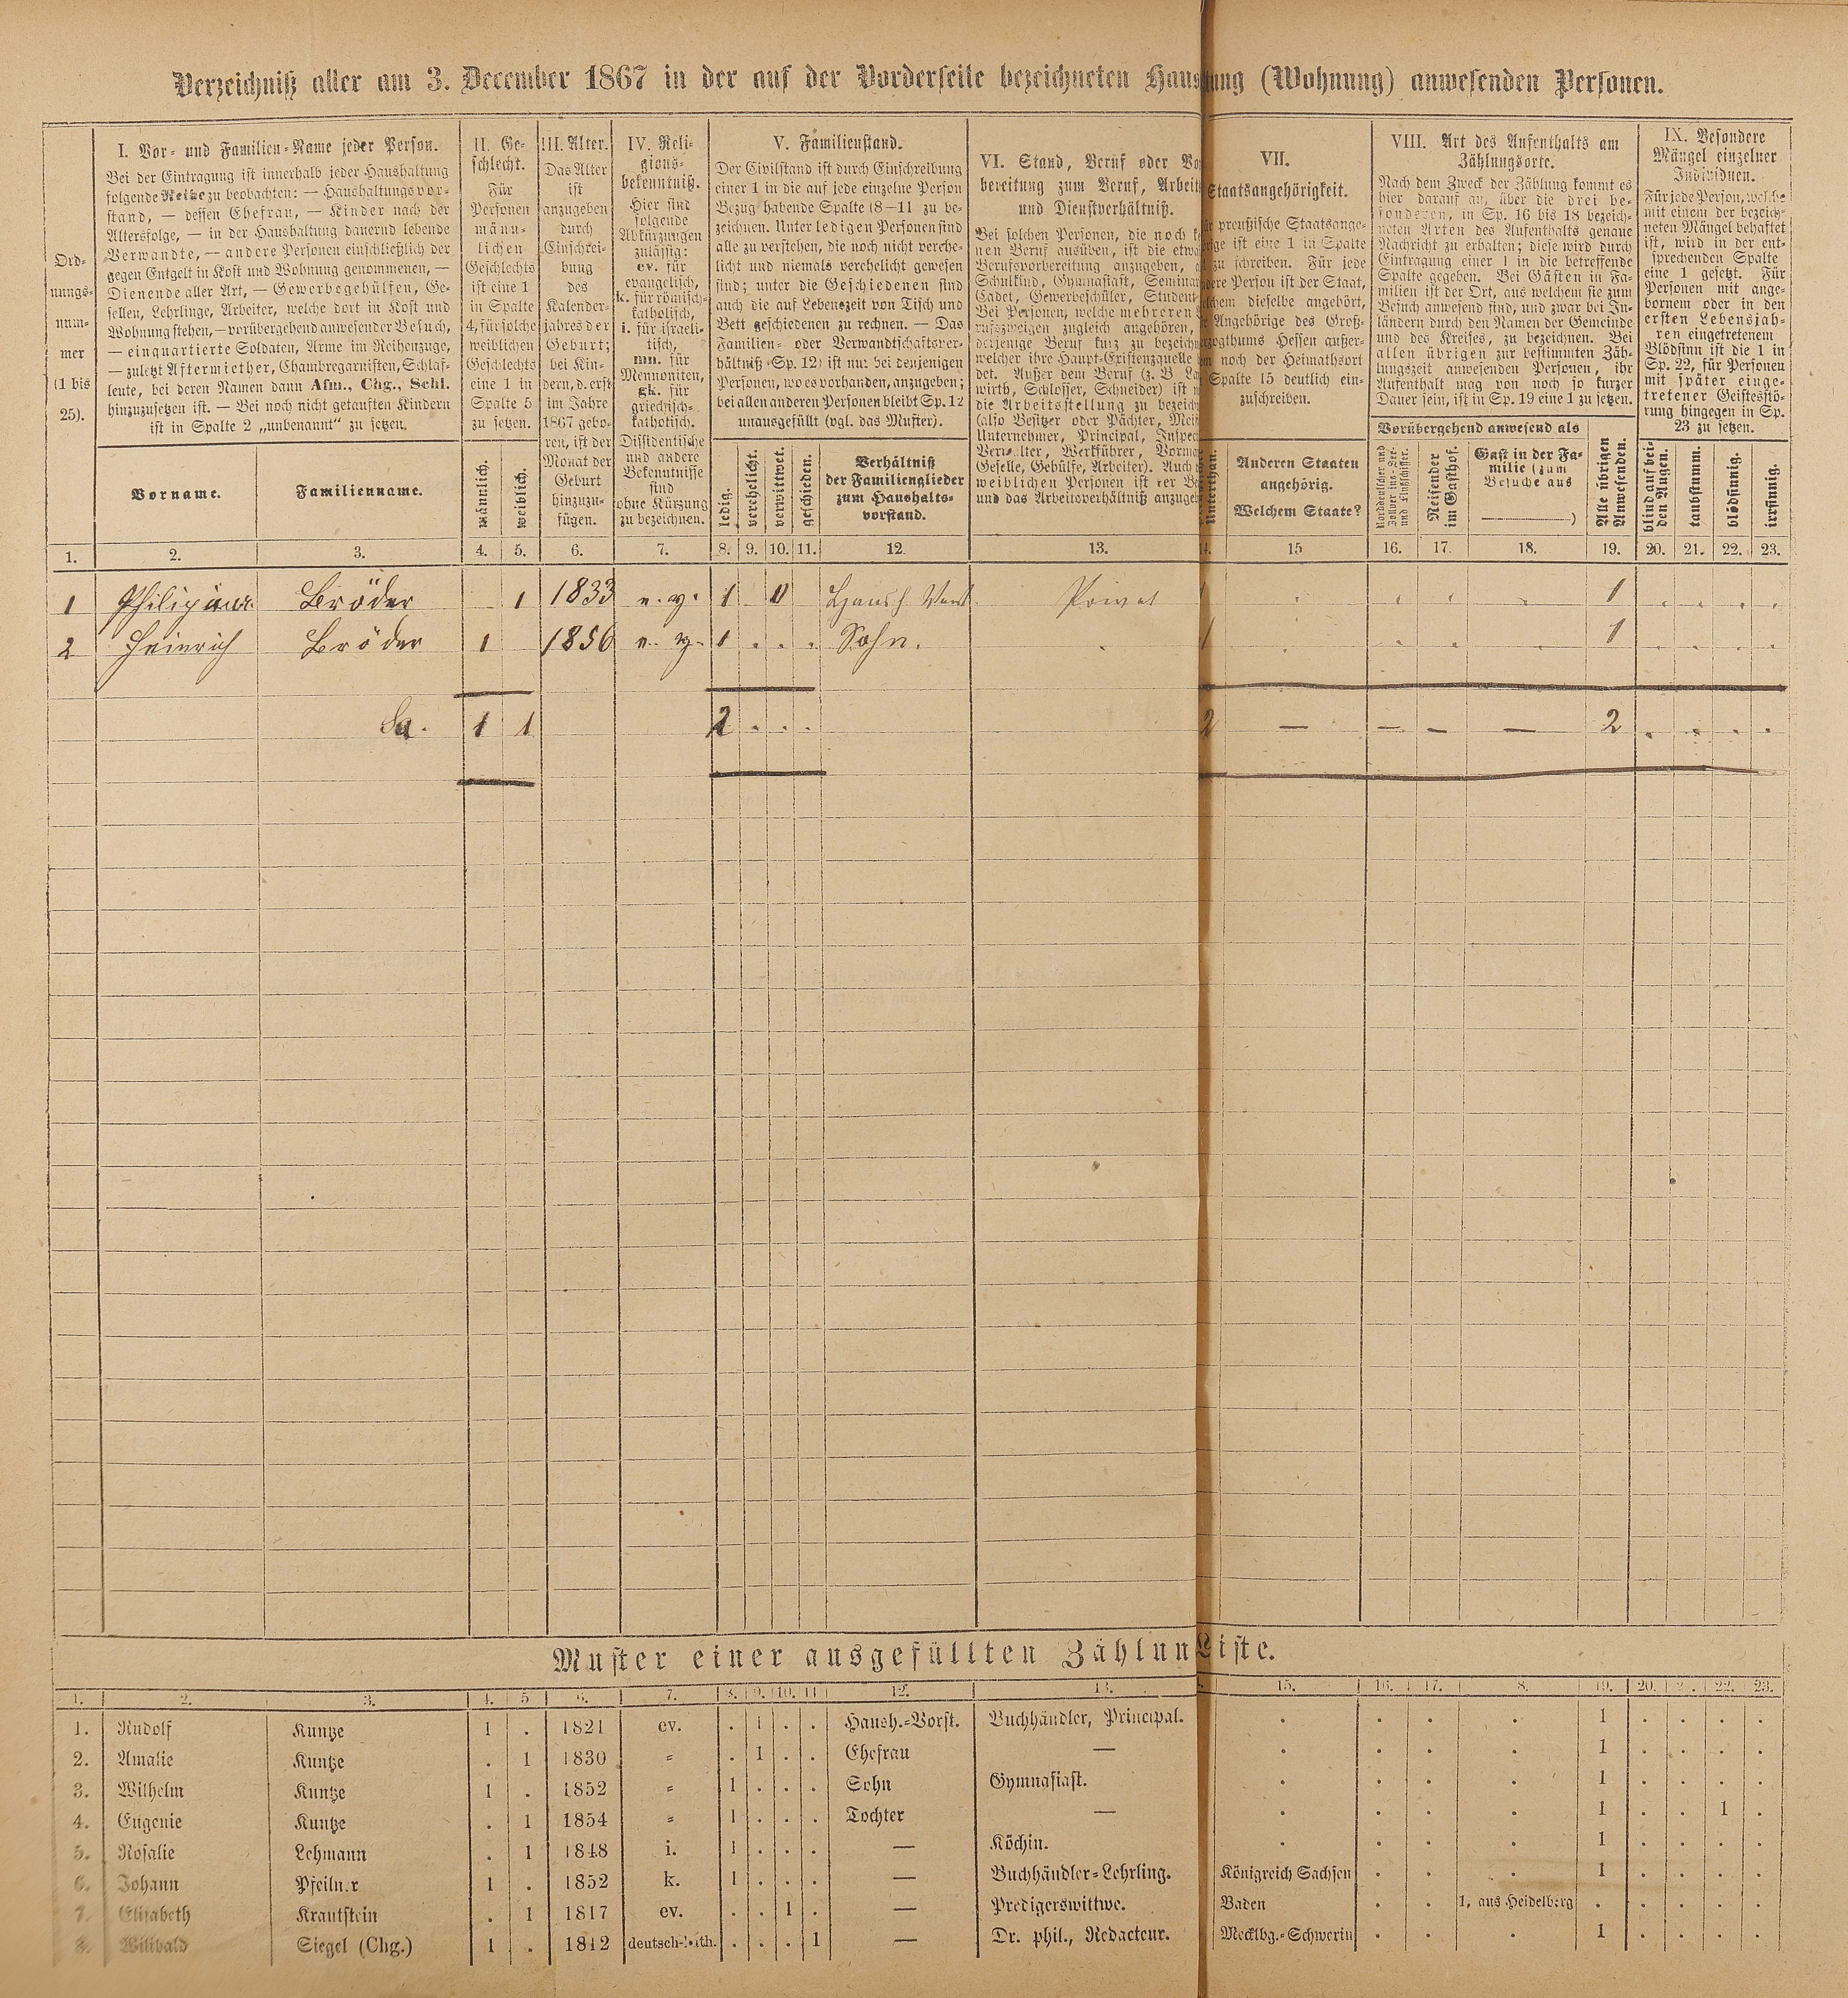 Verzeichniß aller am 3. December 1867 in der auf der Vorderseite bezeichneten Haus tung (Wohnung) anwesenden Personen.
Ord-
nungs-
num-
mer
(1 bis
25).
I. Vor- und Familien-Name jeder Person.
Bei der Eintragung ist innerhalb jeder Haushaltung
folgende Reihe zu beobachten: — Haushaltungsvor-
stand, — dessen Ehefrau, — Kinder nach der
Altersfolge, — in der Haushaltung dauernd lebende
Verwandte, — andere Personen einschließlich der
gegen Entgelt in Kost und Wohnung genommenen, —
Dienende aller Art, — Gewerbegehülfen, Ge-
sellen, Lehrlinge, Arbeiter, welche dort in Kost und
Wohnung stehen, — vorübergehend anwesender Besuch,
— einquartierte Soldaten, Arme im Reihenzuge,
— zuletzt Aftermiether, Chambregarnisten, Schlaf-
leute, bei deren Namen dann Afm., Chg., Schl.
hinzuzusetzen ist. — Bei noch nicht getauften Kindern
ist in Spalte 2 „unbenannt“ zu setzen.
Vorname.
Familienname.
II. Ge-
schlecht.
Für
Personen
männ-
lichen
Geschlechts
ist eine 1
in Spalte
4, für solche
weiblichen
Geschlechts
eine 1 in
Spalte 5
zu setzen.
männlich.
weiblich.
III. Alter.
Das Alter
ist
anzugeben
durch
Einschrei-
bung
des
Kalender-
jahres der
Geburt;
bei Kin-
dern, d. erst
im Jahre
1867 gebo-
ren, ist der
Monat der
Geburt
hinzuzu-
fügen.
IV. Reli-
gions-
bekenntniß.
Hier sind
folgende
Abkürzungen
zulässig:
ev. für
evangelisch,
k. für römisch-
katholisch,
i. für israeli-
tisch,
mn. für
Mennoniten,
gk. für
griechisch-
katholisch.
Dissidentische
und andere
Bekenntnisse
sind
ohne Kürzung
zu bezeichnen.
V. Familienstand.
Der Civilstand ist durch Einschreibung
einer 1 in die auf jede einzelne Person
Bezug habende Spalte (8—11 zu be-
zeichnen. Unter ledigen Personen sind
alle zu verstehen, die noch nicht verehe-
licht und niemals verehelicht gewesen
sind; unter die Geschiedenen sind
auch die auf Lebenszeit von Tisch und
Bett geschiedenen zu rechnen. — Das
Familien- oder Verwandtschaftsver-
hältniß (Sp. 12) ist nur bei denjenigen
Personen, wo es vorhanden, anzugeben;
bei allen anderen Personen bleibt Sp. 12
unausgefüllt (vgl. das Muster).
ledig.
verehelicht.
verwittwet.
geschieden.
Verhältniß
der Familienglieder
zum Haushalts-
vorstand.
VI. Stand, Beruf oder Vo
bereitung zum Beruf, Arbeit
und Dienstverhältniß.
Bei solchen Personen, die noch k
nen Beruf ausüben, ist die etwa
Berufsvorbereitung anzugeben,
Schulkind, Gymnasiast, Seminar
Cadet, Gewerbeschüler, Student
Bei Personen, welche mehreren
rufszweigen zugleich angehören,
derjenige Beruf kurz zu bezeichn
welcher ihre Haupt-Existenzquelle
det. Außer dem Beruf (z. B. La
wirth, Schlosser, Schneider) ist
die Arbeitsstellung zu bezeich
(also Besitzer oder Pächter, Mei
Unternehmer, Principal, Inspec
Verwalter, Werkführer, Vorma
Geselle, Gehülfe, Arbeiter). Auch
weiblichen Personen ist der Be
und das Arbeitsverhältniß anzugeb
VII.
Staatsangehörigkeit.
preußische Staatsange-
ist eine 1 in Spalte
zu schreiben. Für jede
dere Person ist der Staat,
chem dieselbe angehört,
Angehörige des Groß-
zogthums Hessen außer-
noch der Heimathsort
Spalte 15 deutlich ein-
zuschreiben.
Anderen Staaten
angehörig.
Welchem Staate?
VIII. Art des Aufenthalts am
Zählungsorte.
Nach dem Zweck der Zählung kommt es
hier darauf an, über die drei be-
sonderen, in Sp. 16 bis 18 bezeich-
neten Arten des Aufenthalts genaue
Nachricht zu erhalten; diese wird durch
Eintragung einer 1 in die betreffende
Spalte gegeben. Bei Gästen in Fa-
milien ist der Ort, aus welchem sie zum
Besuch anwesend sind, und zwar bei In-
ländern durch den Namen der Gemeinde
und des Kreises, zu bezeichnen. Bei
allen übrigen zur bestimmten Zäh-
lungszeit anwesenden Personen, ihr
Aufenthalt mag von noch so kurzer
Dauer sein, ist in Sp. 19 eine 1 zu setzen.
Vorübergehend anwesend als
Norddeutscher und
Zollver ins-See-
und Flußschiffer.
Reisender
im Gasthof.
Gast in der Fa-
milie (zum
Besuche aus
)
Alle übrigen
Anwesenden.
IX. Besondere
Mängel einzelner
Individuen.
Für jede Person, welche
mit einem der bezeich-
neten Mängel behaftet
ist, wird in der ent-
sprechenden Spalte
eine 1 gesetzt. Für
Personen mit ange-
bornem oder in den
ersten Lebensjah-
ren eingetretenem
Blödsinn ist die 1 in
Sp. 22, für Personen
mit später einge-
tretener Geistesstö-
rung hingegen in Sp.
23 zu setzen.
blind auf bei-
den Augen.
taubstumm.
blödsinnig.
irrsinnig.
1. 2. 3. 4. 5. 6. 7. 8. 9. 10. 11. 12. 13. 15 16. 17. 18. 19. 20. 21. 22. 23.
1 Philipine Bröder 1 1833 e. v. 1 Haush Vorst. Privat 1
2 Heinrich Bröder 1 1856 e. v. 1 . . . Sohn. . 1 1
Sa. 1 1 2 . . . 2 — — — — 2 . . . .
Muster einer ausgefüllten Zählun Liste.
1. 2. 3. 4. 5 6. 7. 8. 9. 10. 11 12. 13. 15. 16. 17. 8. 19. 20. 2 . 22. 23.
1. Rudolf Kuntze 1 . 1821 ev. . 1 . . Haush.-Vorst. Buchhändler, Principal. . . . . 1 . . . .
2. Amalie Kuntze . 1 1830 = . 1 . . Ehefrau — . . . . 1 . . . .
3. Wilhelm Kuntze 1 . 1852 = 1 . . . Sohn Gymnasiast. . . . . 1 . . . .
4. Eugenie Kuntze . 1 1854 = 1 . . . Tochter — . . . . 1 . . 1 .
5. Rosalie Lehmann . 1 1848 i. 1 . . . — Köchin. . . . . 1 . . . .
6. Johann Pfeiln.r 1 . 1852 k. 1 . . . — Buchhändler-Lehrling. Königreich Sachsen . . . 1 . . . .
7. Elisabeth Krautstein . 1 1817 ev. . . 1 . — Predigerswittwe. Baden . . 1, aus Heidelberg . . . . .
8. Wilibald Siegel (Chg.) 1 . 1812 deutsch-kath. . . . 1 — Dr. phil., Redacteur. Mecklbg.-Schwerin . . . 1 . . . .